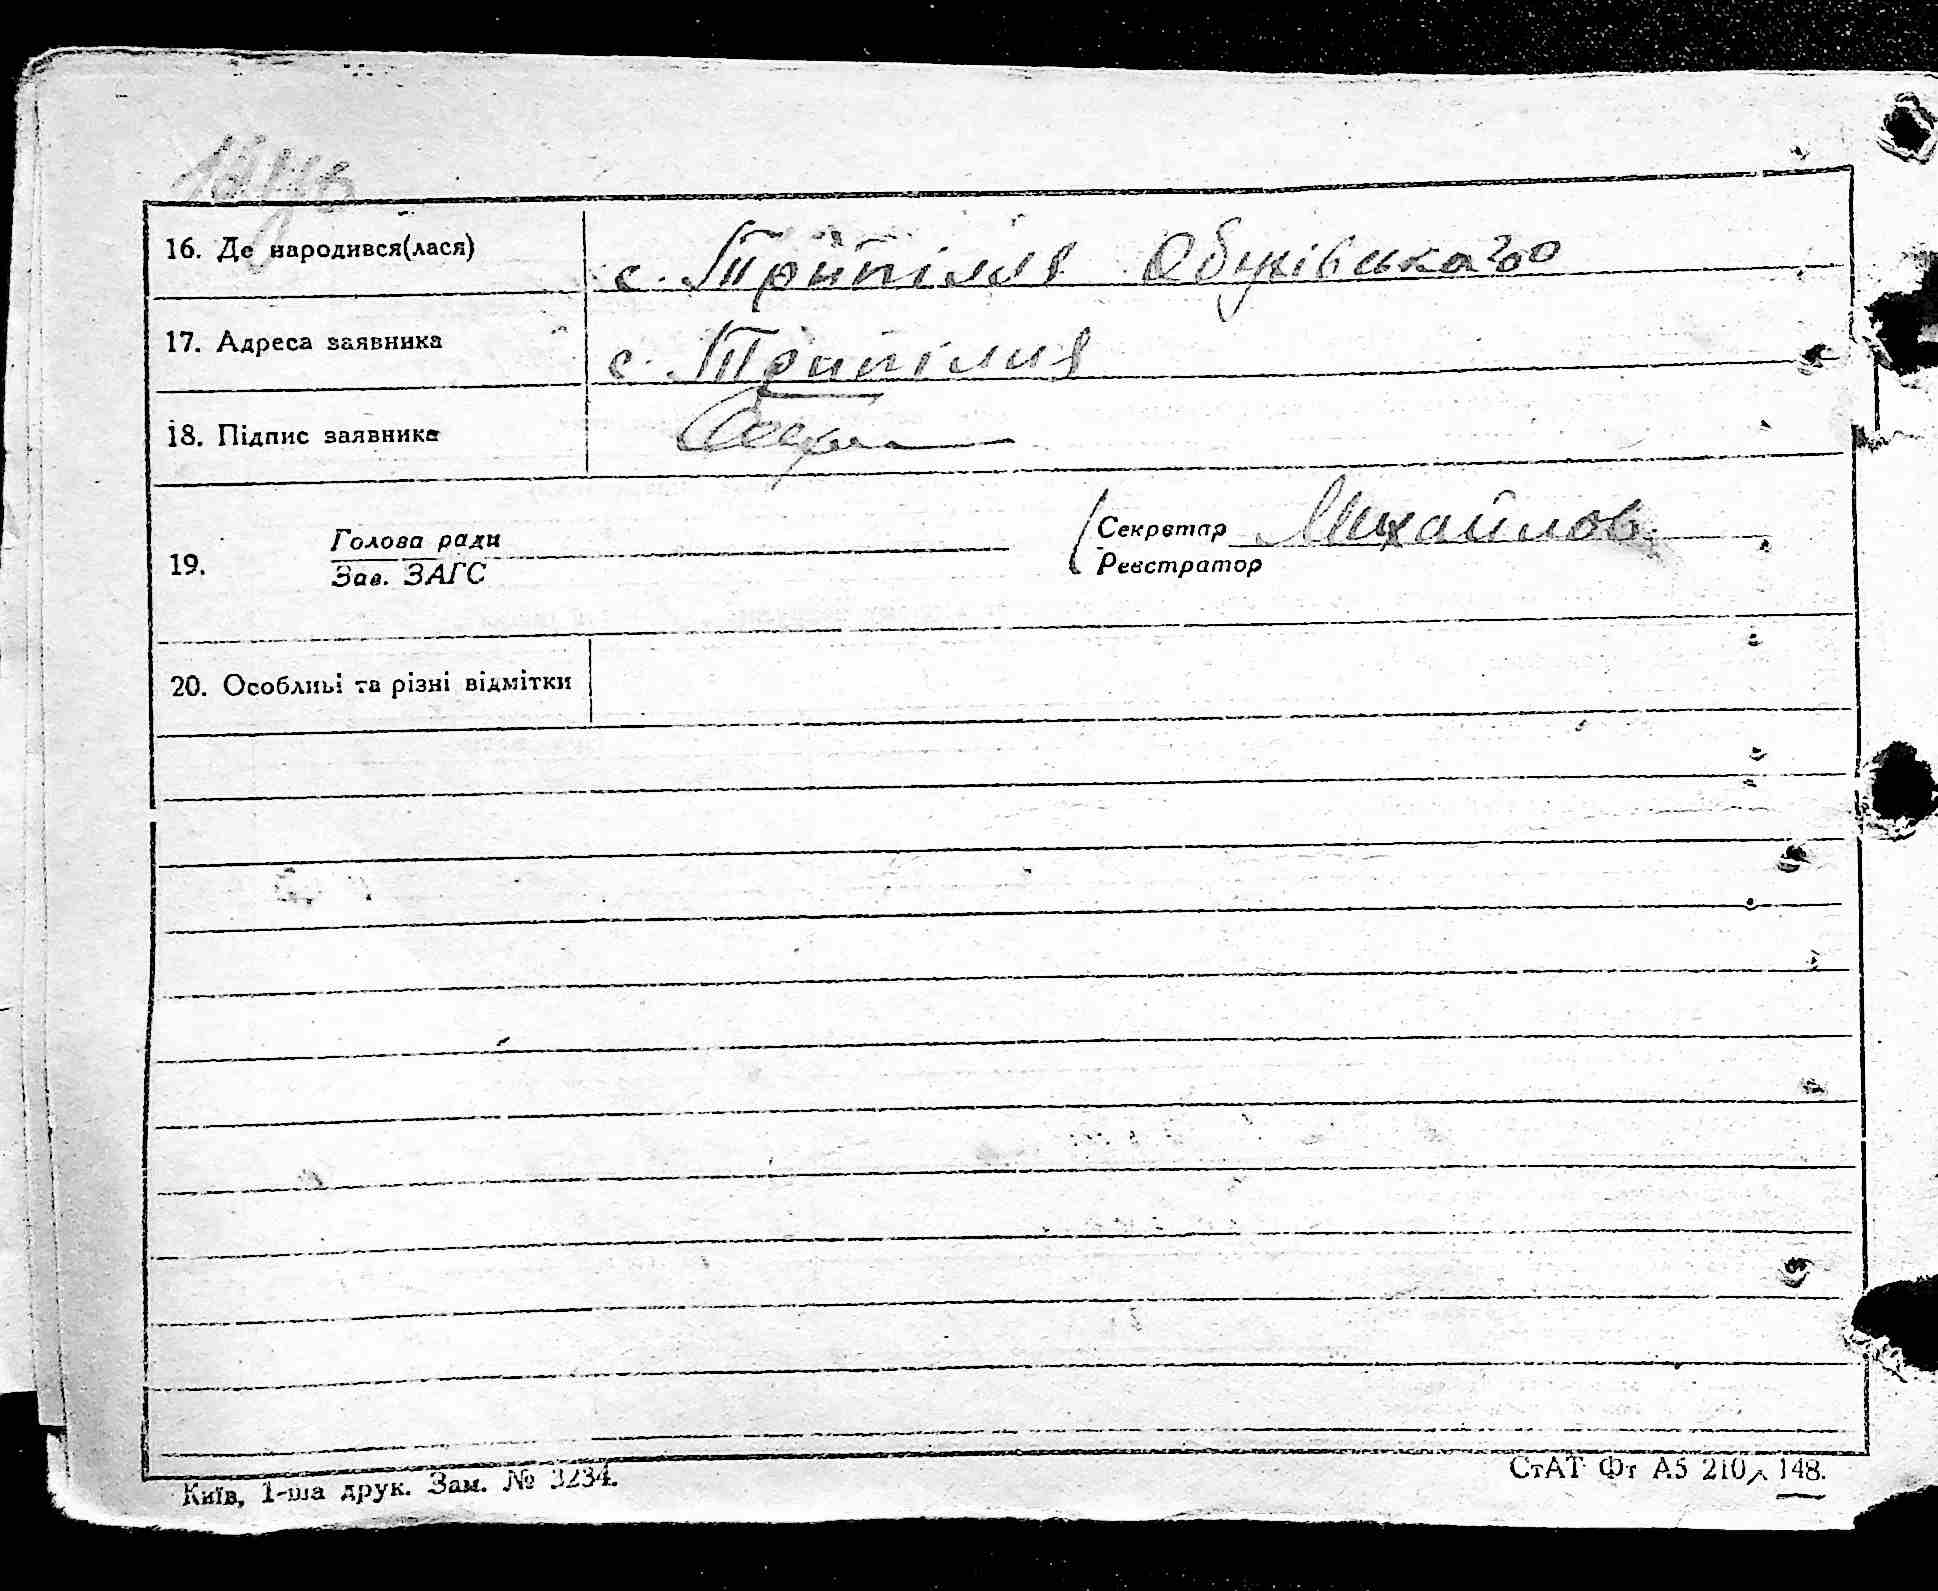 16. Де народився(лася) с. Трипілля Обухівського
17. Адреса заявника с. Трипілля
18. Підпис заявника
19. Голова ради Секретар Михайлов
Зав. ЗАГС Реєстратор
20. Особливі та різні відмітки
Київ, 1-ша друк. Зам. № 3234. СтАТ Фт А5 210 148.